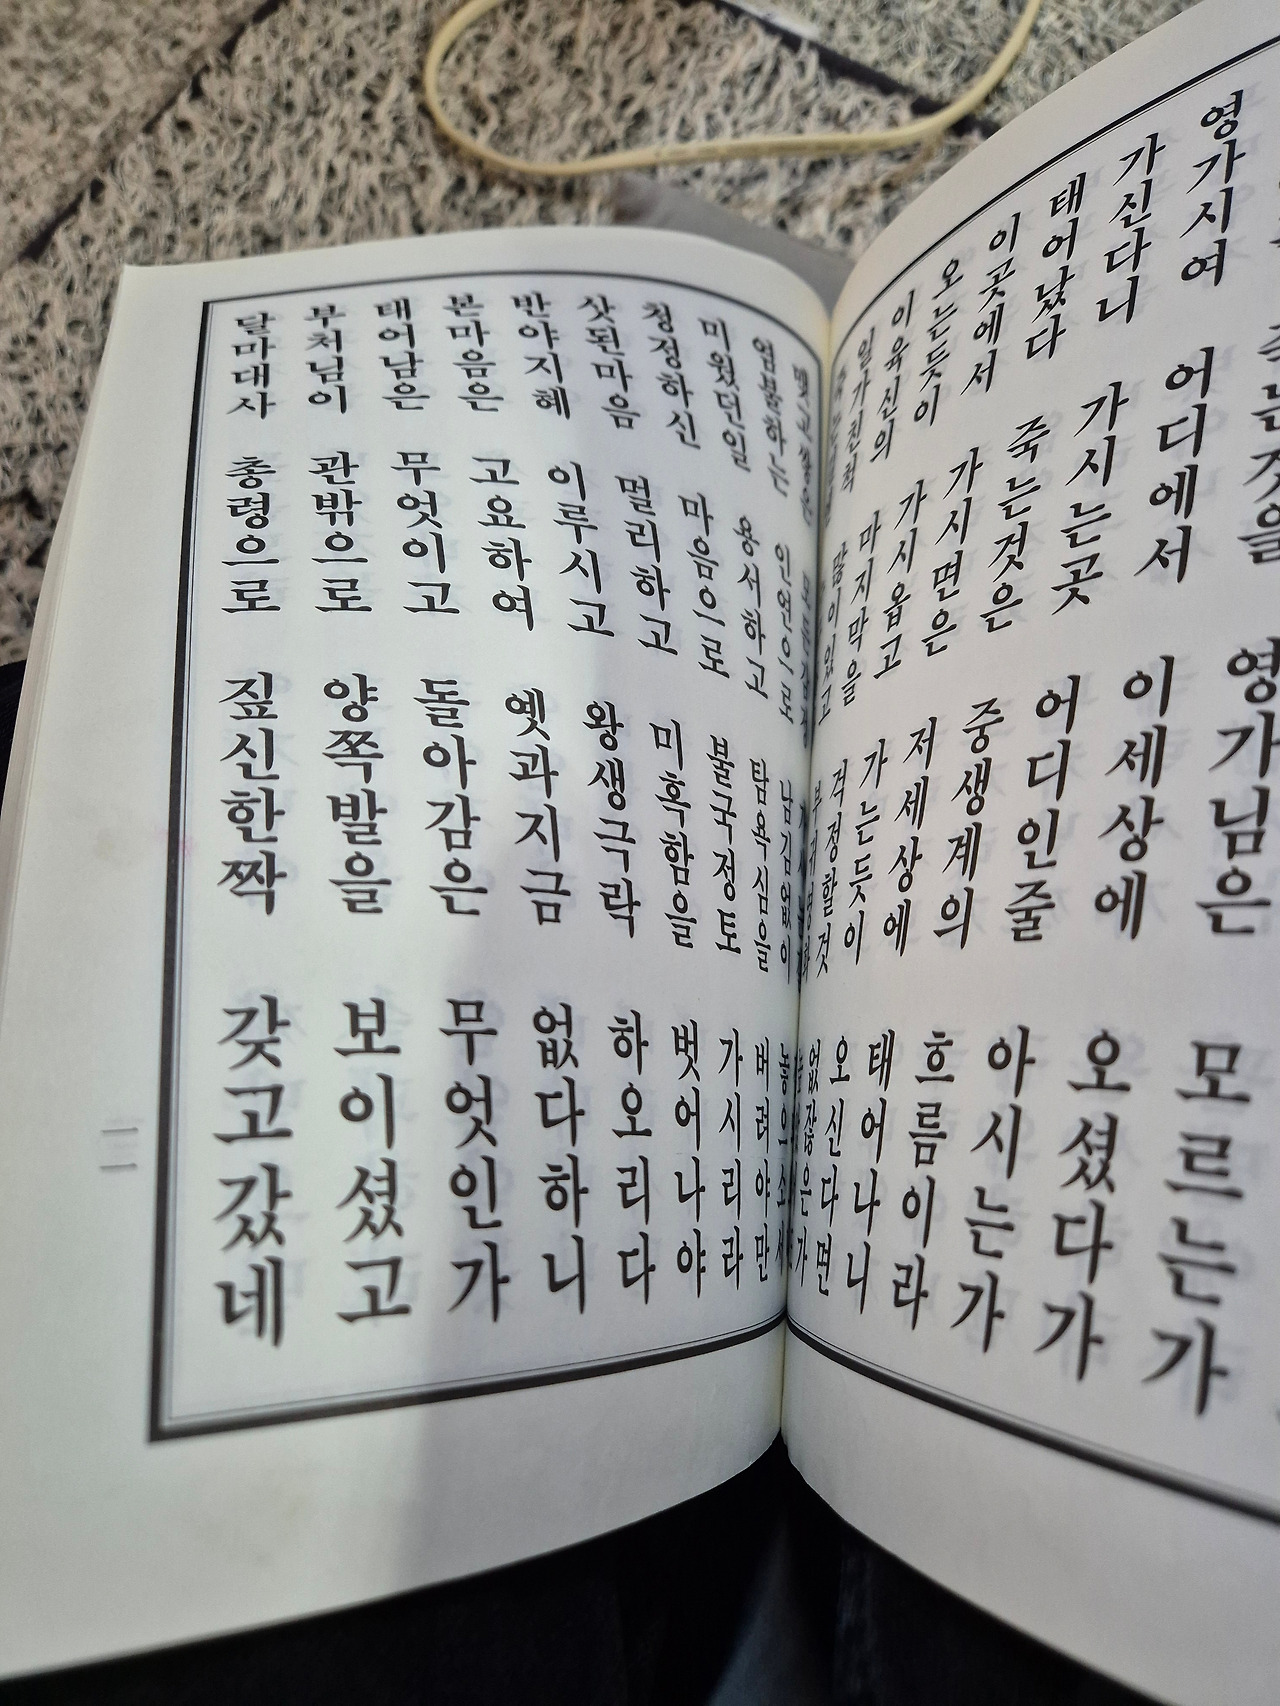 는것을 영가님은 모르는가
영가시여 어디에서 이세상에 오셨다가
가신다니 가시는곳 어디인줄 아시는가
태어났다 죽는것은 중생계의 흐름이라
이곳에서 가시면은 저세상에 태어나니
오는듯이 가시옵고 가는듯이 오신다면
이육신의 마지막을 걱정할것 없잖은가
일가친척 많이있고
염불하는 인연으로 남김없이 놓으소서
미웠던일 용서하고 탐욕심을 버려야만
청정하신 마음으로 불국정토 가시리라
삿된마음 멀리하고 미혹함을 벗어나야
반야지혜 이루시고 왕생극락 하오리다
본마음은 고요하여 옛과지금 없다하니
태어남은 무엇이고 돌아감은 무엇인가
부처님이 관밖으로 양쪽발을 보이셨고
달마대사 총령으로 짚신한짝 갖고갔네
一一